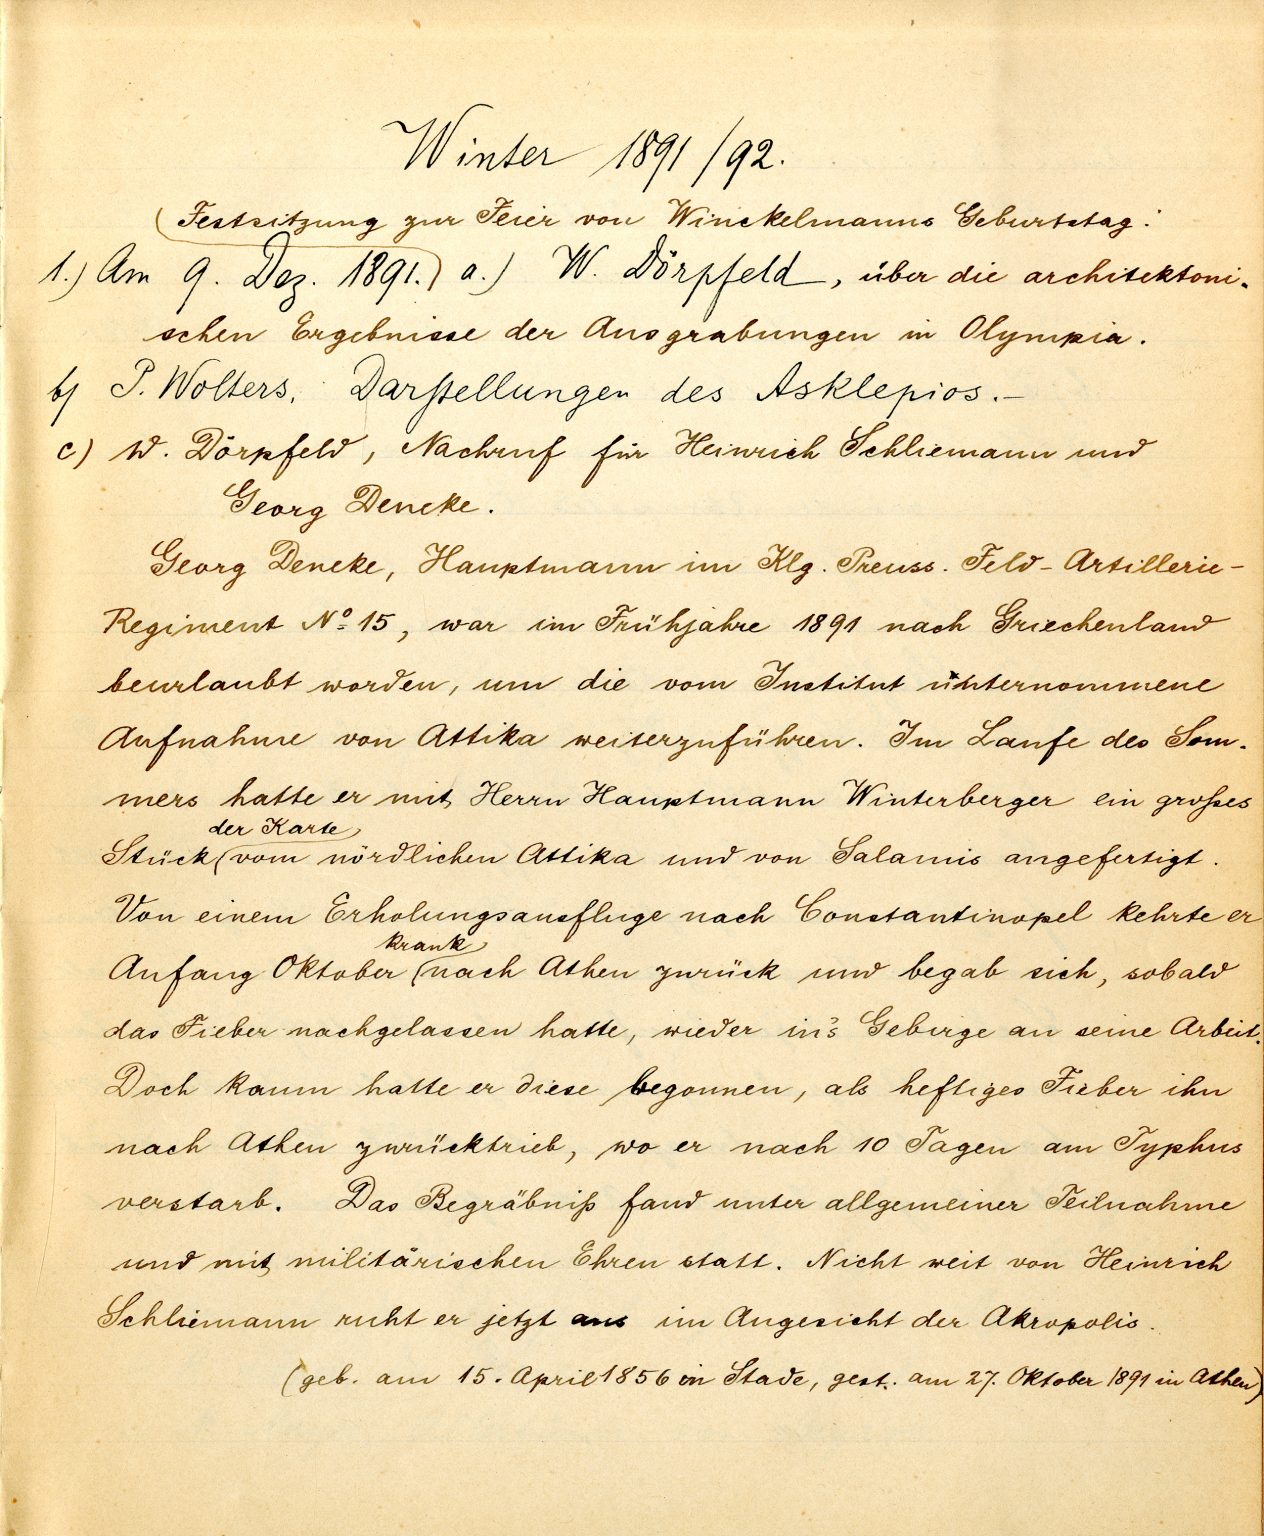 Winter 1891/92.
(Festsitzung zur Feier von Winckelmanns Geburtstag:
1.) Am 9. Dez. 1891.) a.) W. Dörpfeld, über die architektoni-
schen Ergebnisse der Ausgrabungen in Olympia.
b) P. Wolters, Darstellungen des Asklepios.-
c) W. Dörpfeld, Nachruf für Heinrich Schliemann und
Georg Deneke.
Georg Deneke, Hauptmann im Klg. Preuss. Feld-Artillerie-
Regiment No 15, war im Frühjahre 1891 nach Griechenland
beurlaubt worden, um die vom Institut unternommene
Aufnahme von Attika weiterzuführen. Im Laufe des Som-
mers hatte er mit Herrn Hauptmann Winterberger ein großes
der Karte
Stück (vom nördlichen Attika und von Salamis angefertigt.
Von einem Erholungsausfluge nach Constantinopel kehrte er
krank
Anfang Oktober (nach Athen zurück und begab sich, sobald
das Fieber nachgelassen hatte, wieder in's Gebirge an seine Arbeit.
Doch kaum hatte er diese begonnen, als heftiges Fieber ihn
nach Athen zurücktrieb, wo er nach 10 Tagen am Typhus
verstarb. Das Begräbniß fand unter allgemeiner Teilnahme
und mit militärischen Ehren statt. Nicht weit von Heinrich
Schliemann ruht er jetzt aus im Angesicht der Akropolis.
(geb. am 15. April 1856 in Stade, gest. am 27. Oktober 1891 in Athen)